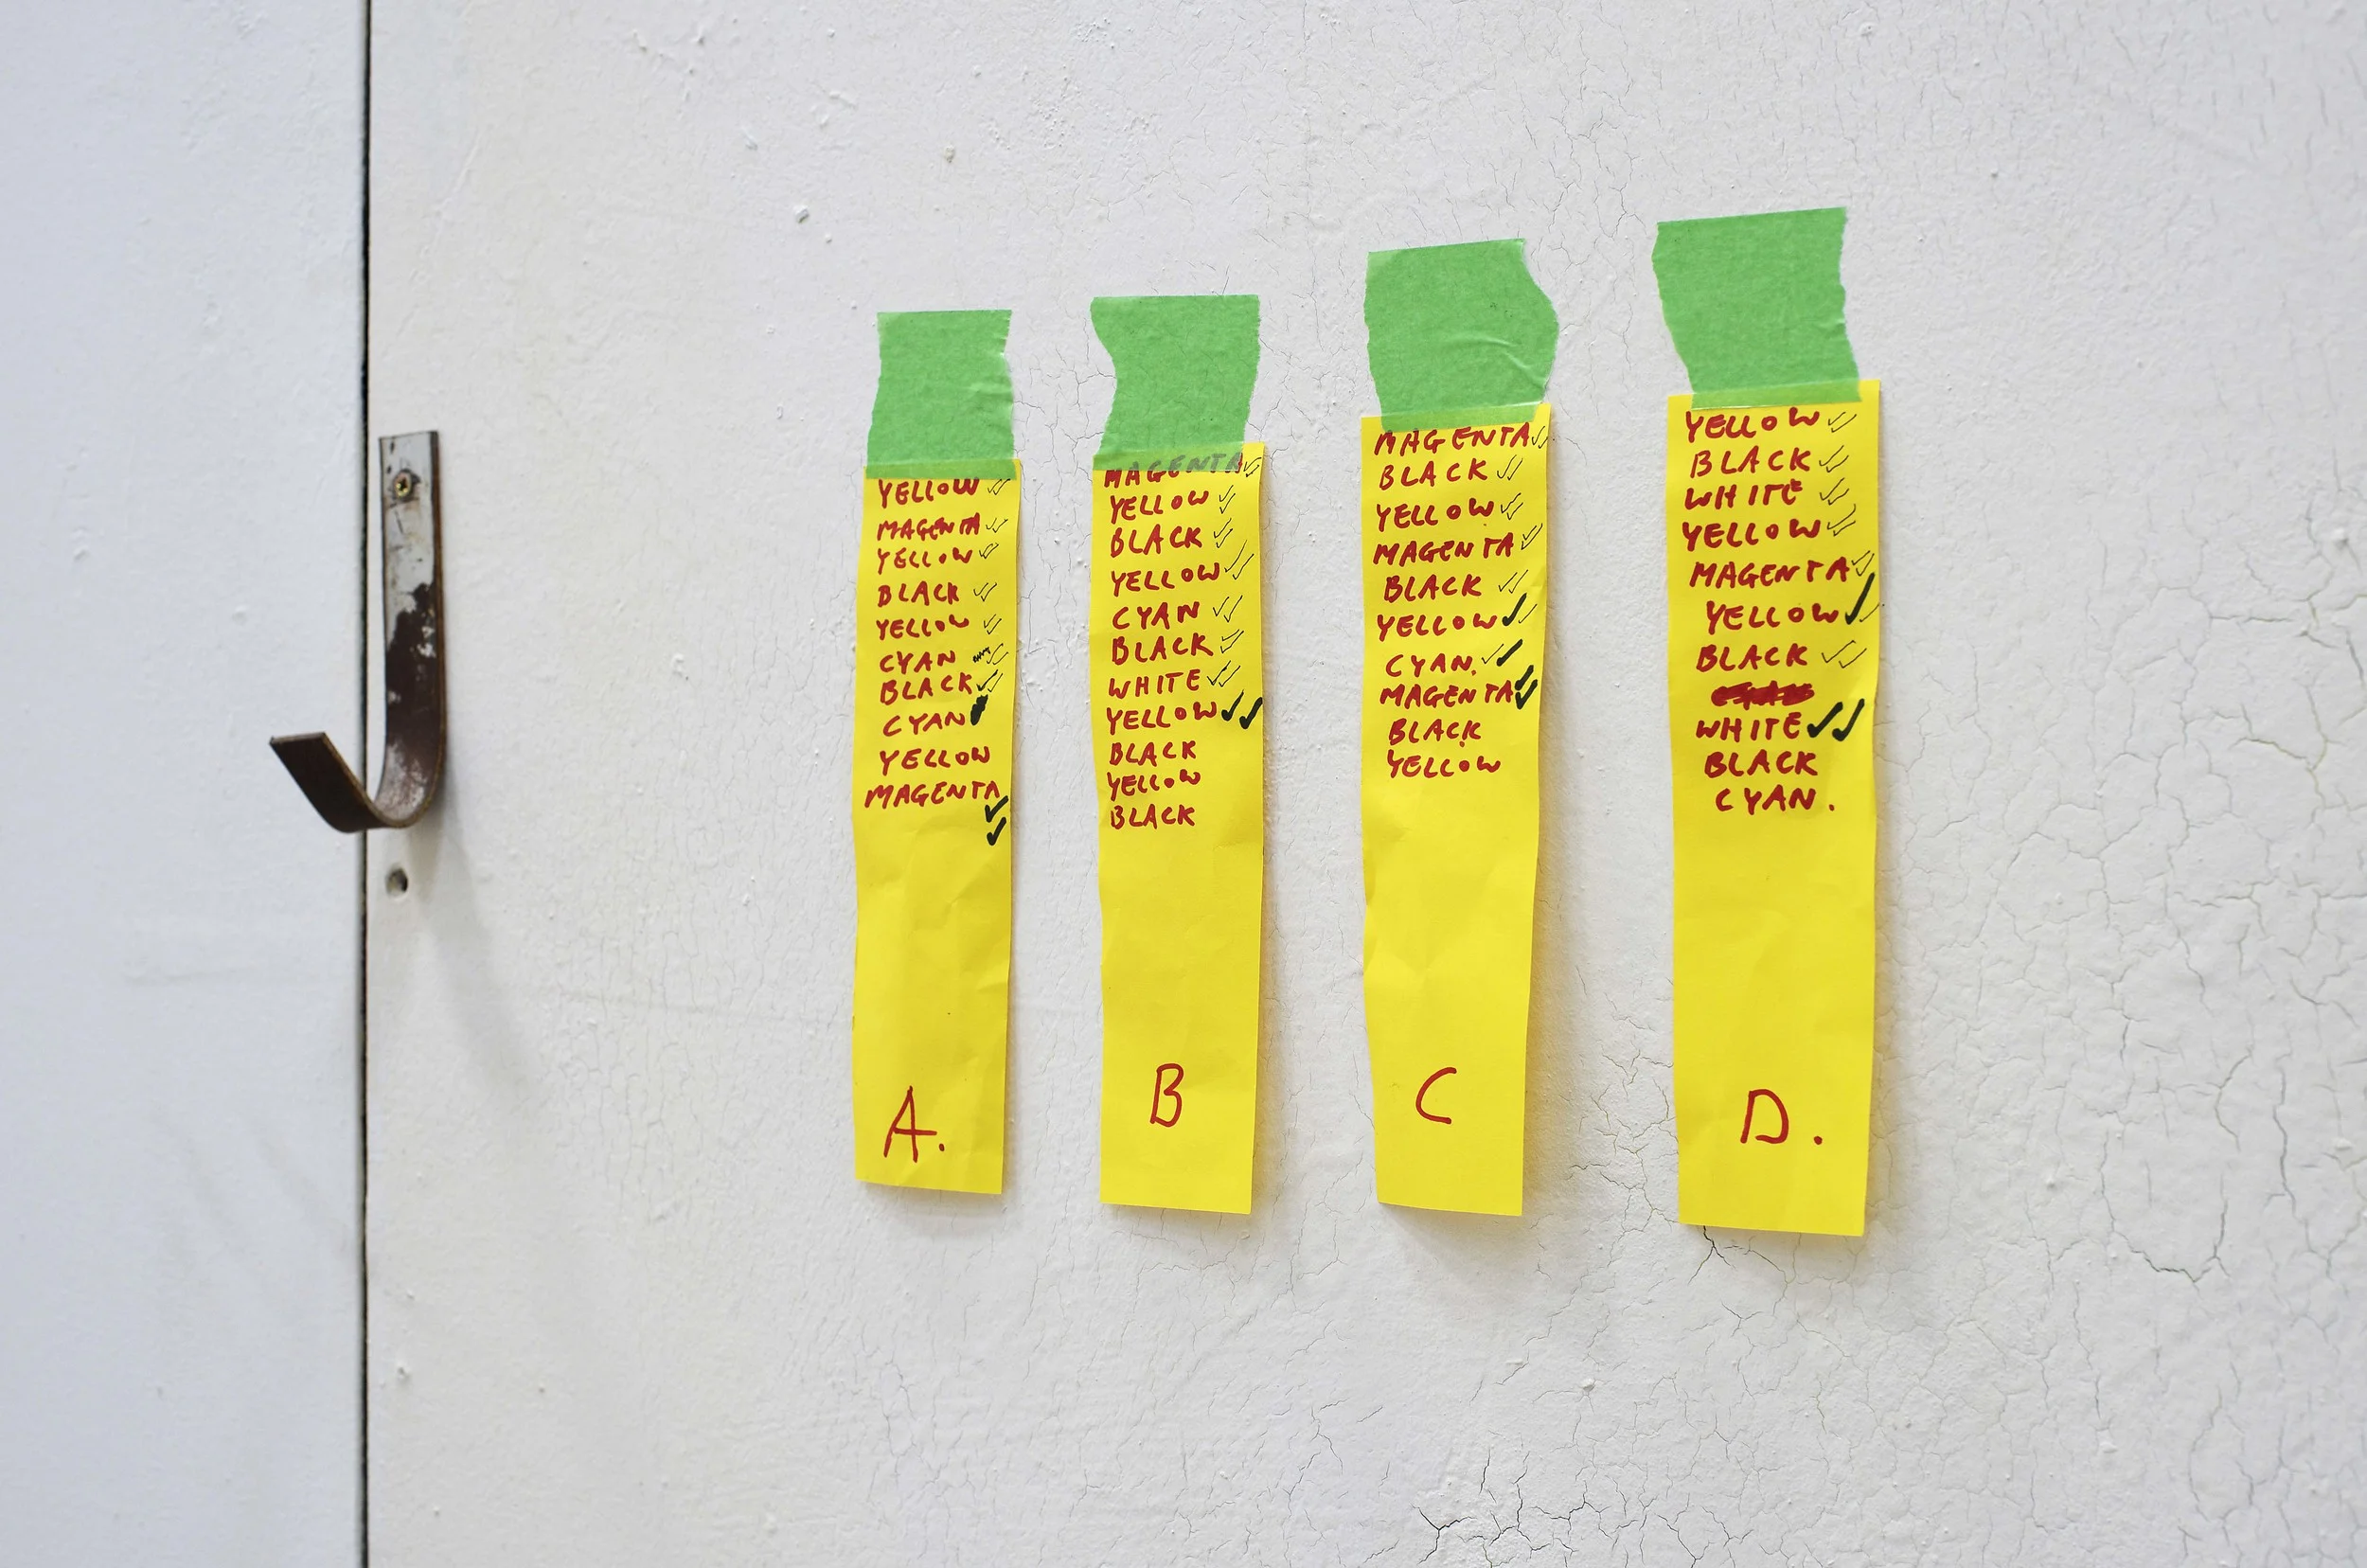 YELLOW
MAGENTA
YELLOW
BLACK
YELLOW
CYAN
BLACK
CYAN
YELLOW
MAGENTA
A.
MAGENTA
YELLOW
BLACK
YELLOW
CYAN
BLACK
WHITE
YELLOW
BLACK
YELLOW
BLACK
B
MAGENTA
BLACK
YELLOW
MAGENTA
BLACK
YELLOW
CYAN.
MAGENTA
BLACK
YELLOW
C
YELLOW
BLACK
WHITE
YELLOW
MAGENTA
YELLOW
BLACK
WHITE
BLACK
CYAN.
D.